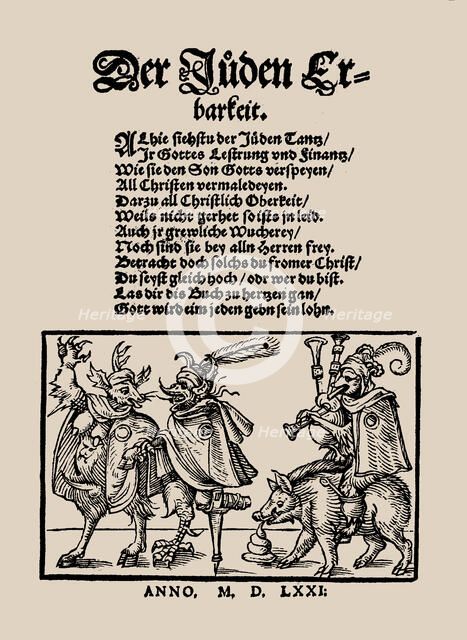 Der Jůden Er=
barkeit.
ALhie siehstu der Jüden Tantz/
Jr Gottes Lestrung vnd Finantz/
Wie sie den Son Gotts verspeyen/
All Christen vermaledeyen.
Darzu all Christlich Oberkeit/
Weils nicht gerhet so ists jn leid.
Auch jr grewliche Wucherey/
Noch sind sie bey alln Herren frey.
Betracht doch solchs du fromer Christ/
Du seyst gleich hoch/ odr wer du bist.
Las dir dis Buch zu hertzen gan/
Gott wird eim jeden gebn sein lohn.
Heritage Heritage
Heritage Heritage
ANNO, M, D, LXXI: